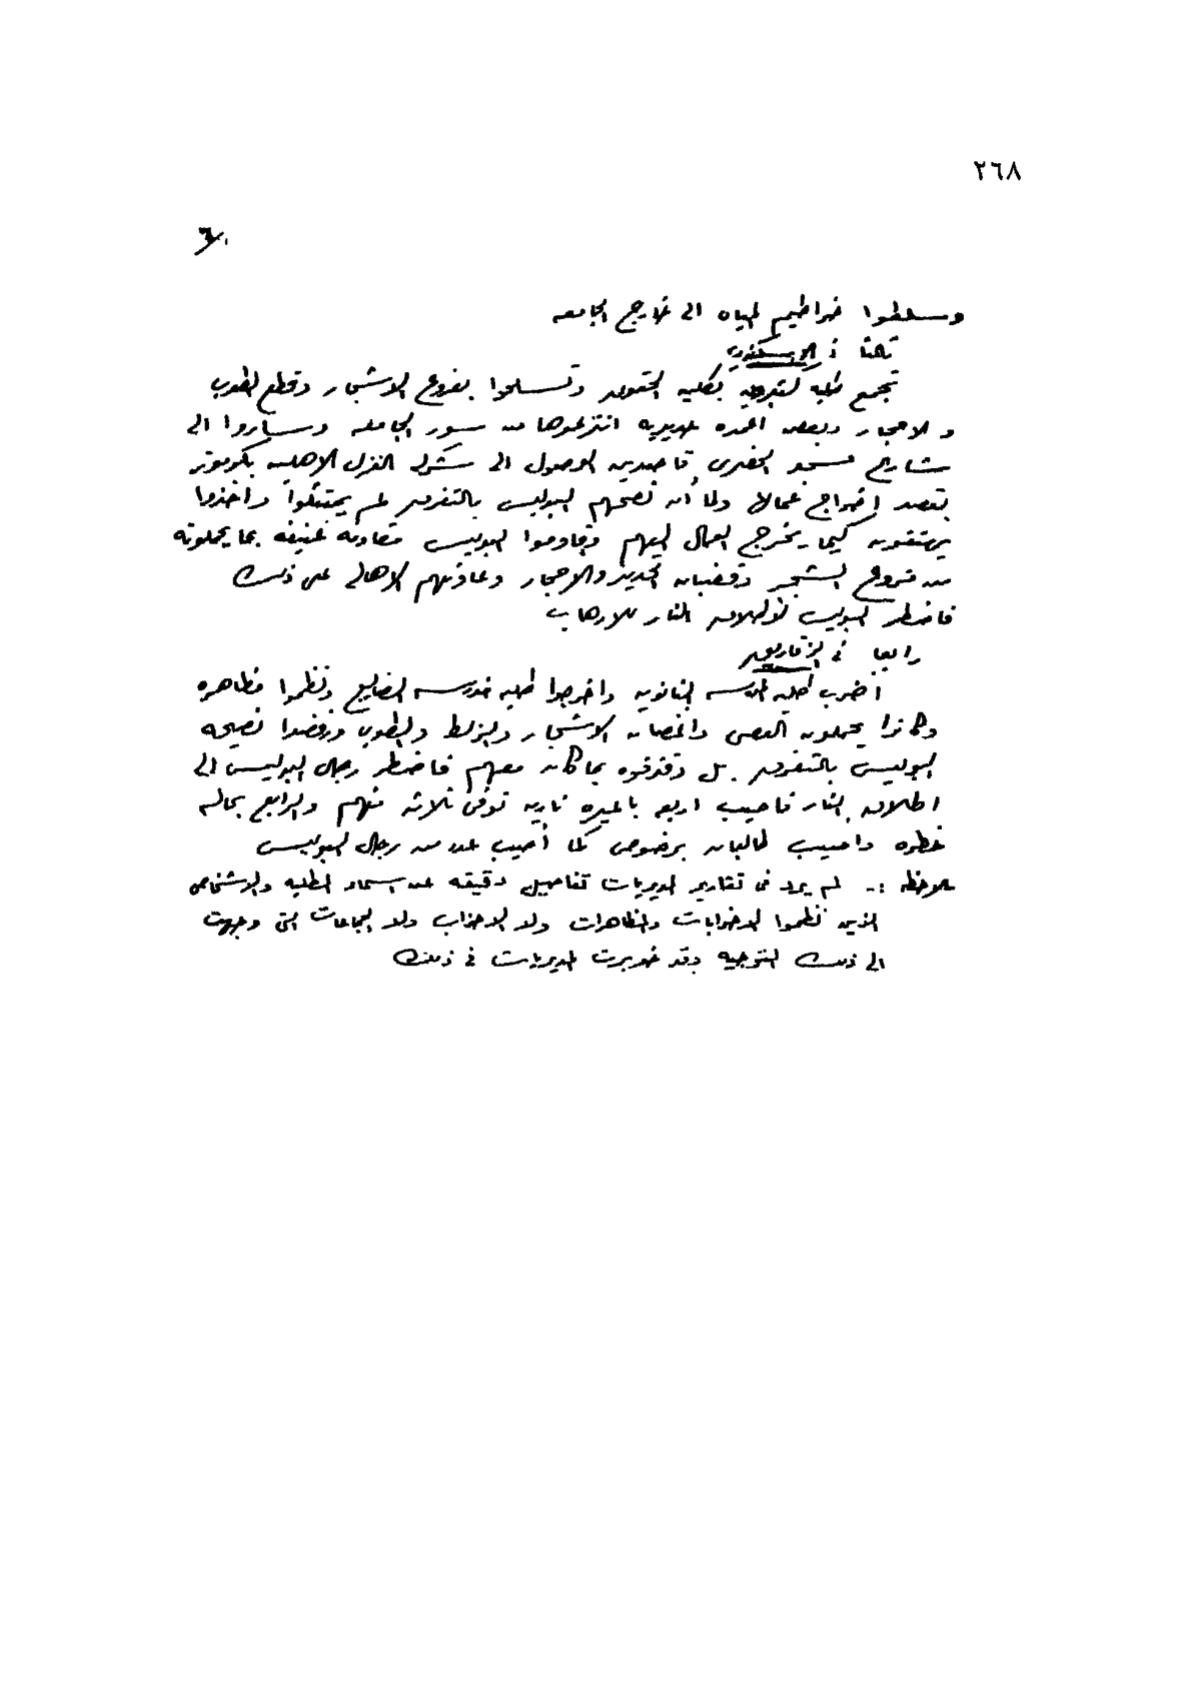 ٢٦٨
وسلطوا خراطيم المياه الى خارج الجامعه
ثالثا : الاسكندرية
تجمع طلبه بكليه الحقوق وتسلحوا بفروع الاشجار وقطع الطوب
والاحجار وبعض اعمده حديديه انتزعوها من سور الجامعه وساروا الى
شارع مسجد الحضرى قاصدين الوصول الى شركه الغزل الاهليه بكرموز
بقصد اخراج عمالها ولما أن نصحهم البوليس بالتفرق لم يمتثلوا وأخذوا
يهتفون كيما يخرج العمال اليهم وقاوموا البوليس مقاومة عنيفه بما يحملونه
من فروع الشجر وقضبان الحديد والاحجار وعاونهم الاهالى على ذلك
فاضطر البوليس لاطلاق النار للارهاب
رابعا فى الزقازيق
أضرب طلبه المدرسه الثانويه واخرجوا طلبه مدرسه الصنايع ونظموا مظاهره
وكانوا يحملون العصى واغصان الاشجار والزلط والطوب ورفضوا نصيحه
البوليس بالتفرق . بل وقذفوه بما كان معهم فاضطر رجال البوليس الى
اطلاق النار فاصيب اربعه باعيره ناريه توفى ثلاثه منهم والرابع بحاله
خطره واصيب طالبان برضوض كما أصيب عدد من رجال البوليس
ملاحظه :- لم يرد فى تقارير المديريات تفاصيل دقيقه عن اسماء الطلبه والاشخاص
الذين نظموا الاضرابات والمظاهرات ولا الاحزاب ولا الجماعات التى وجهت
الى ذلك التوجيه وقد خوبرت المديريات فى ذلك